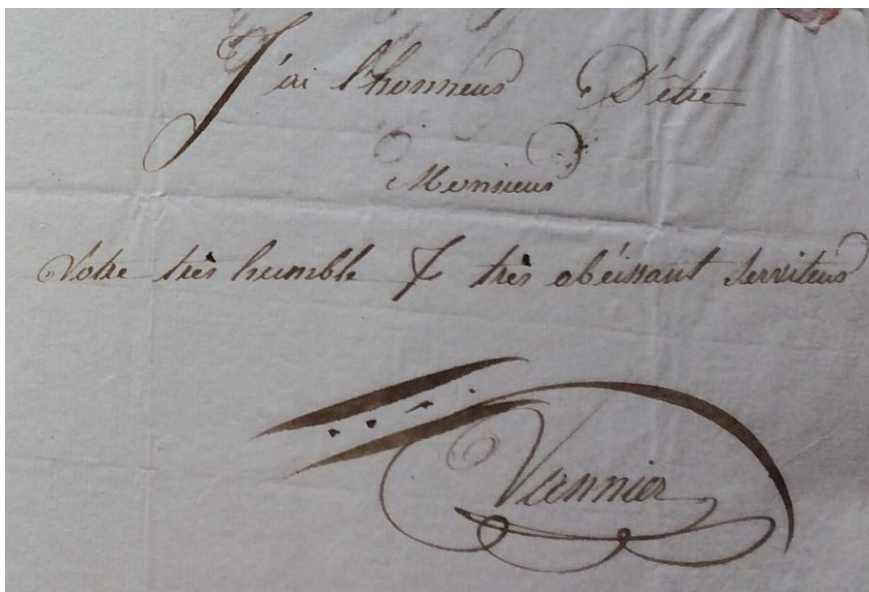 J'ai l'honneur D'être
Monsieur
Votre très humble & très obéissant Serviteur
Vannier